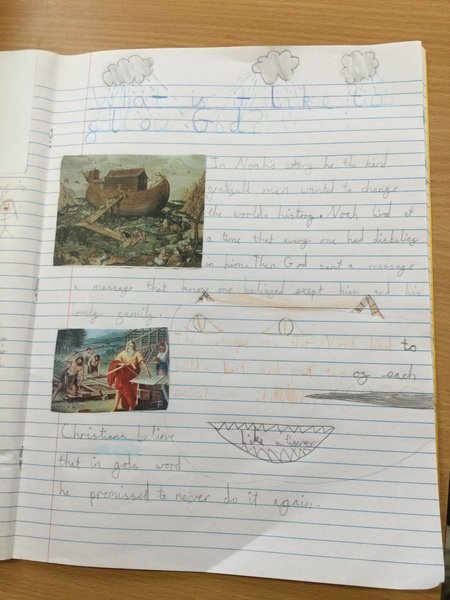 What is it like to
follow God?
In Noah's story he the kind
gratefull man wanted to change
the worlds history. Noah lived at
a time that every one had disbelieve
in him. Then God sent a message
a message that know one beliaved exept him and his
lovely family.
message was that Noah had to
boat of each
like a
Christians believe
that in gods word
he promissed to never do it again.